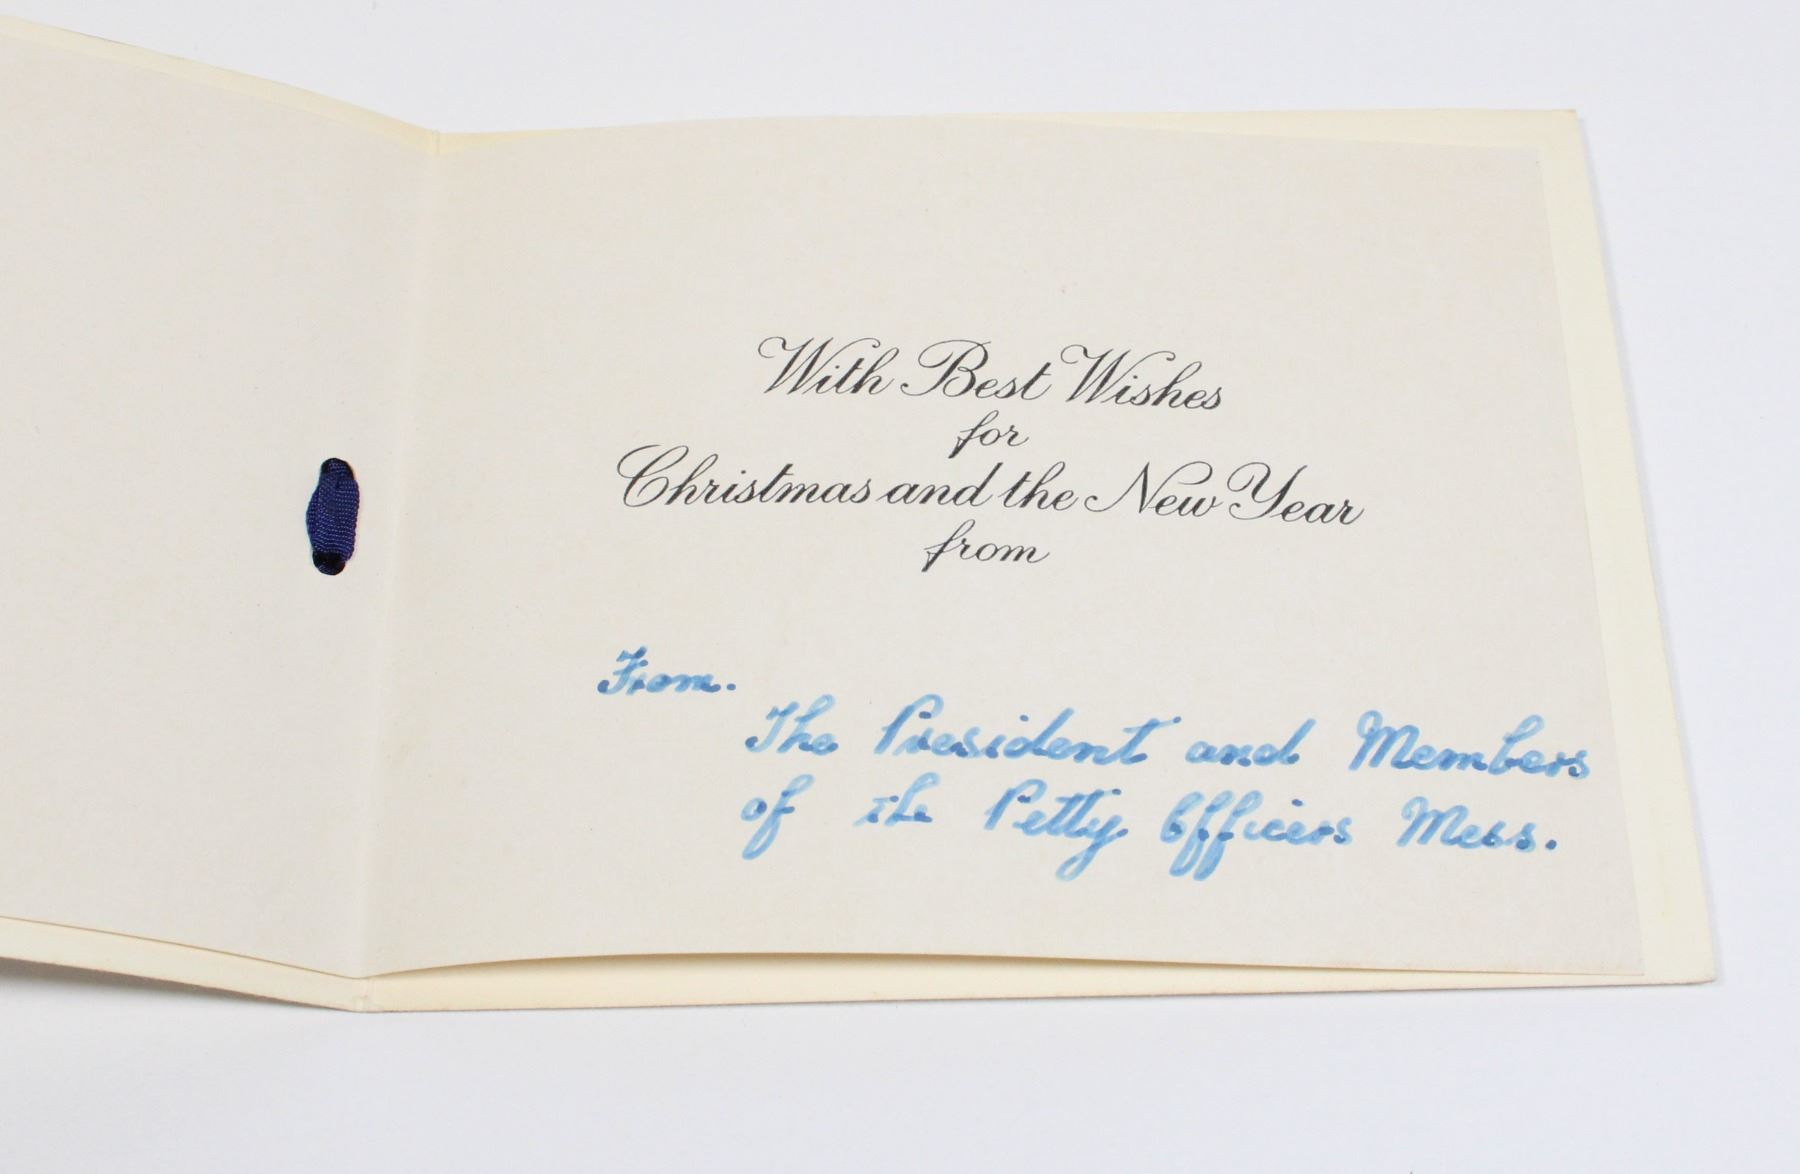 With Best Wishes
for
Christmas and the New Year
from
From.
The President and Members
of the Petty Officers Mess.